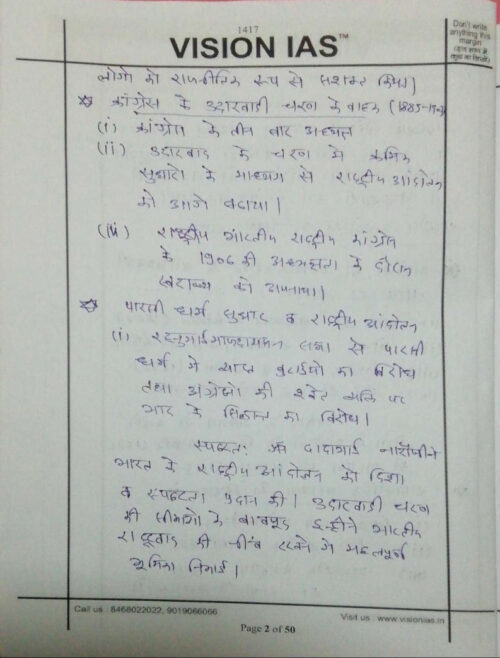 1417
VISION IAS™
Don't write
anything this
margin
लोगो को राजनीतिक रूप से सशक्त किया।
कांग्रेस के उदारवादी चरण के वाहक (1885-
(i) कांग्रेस के तीन बार अध्यक्ष
(ii) उदारवाद के चरण में क्रमिक
सुधारो के माध्यम से राष्ट्रीय आंदोलन
को आगे बढाया।
(iii) राष्ट्रीय भारतीय राष्ट्रीय कांग्रेस
के 1906 की अध्यक्षता के दौरान
स्वराज्य को अपनाया।
पारसी धर्म सुधार व राष्ट्रीय आंदोलन
(i) सभा से पारसी
धर्म में व्याप्त बुराईयो का विरोध
तथा अंग्रेजो की श्वेत व्यक्ति पर
भार के सिद्धान्त का विरोध।
स्पष्टतः दादाभाई नारोजी ने
भारत के राष्ट्रीय आंदोलन को दिशा
व स्पष्टता प्रदान की। उदारवादी चरण
की सीमाओ के बावजूद इन्होने भारतीय
राष्ट्रवाद की नींव रखने में महत्वपूर्ण
भूमिका निभाई।
Call us : 8468022022, 9019066066
Visit us : www.visionias.in
Page 2 of 50